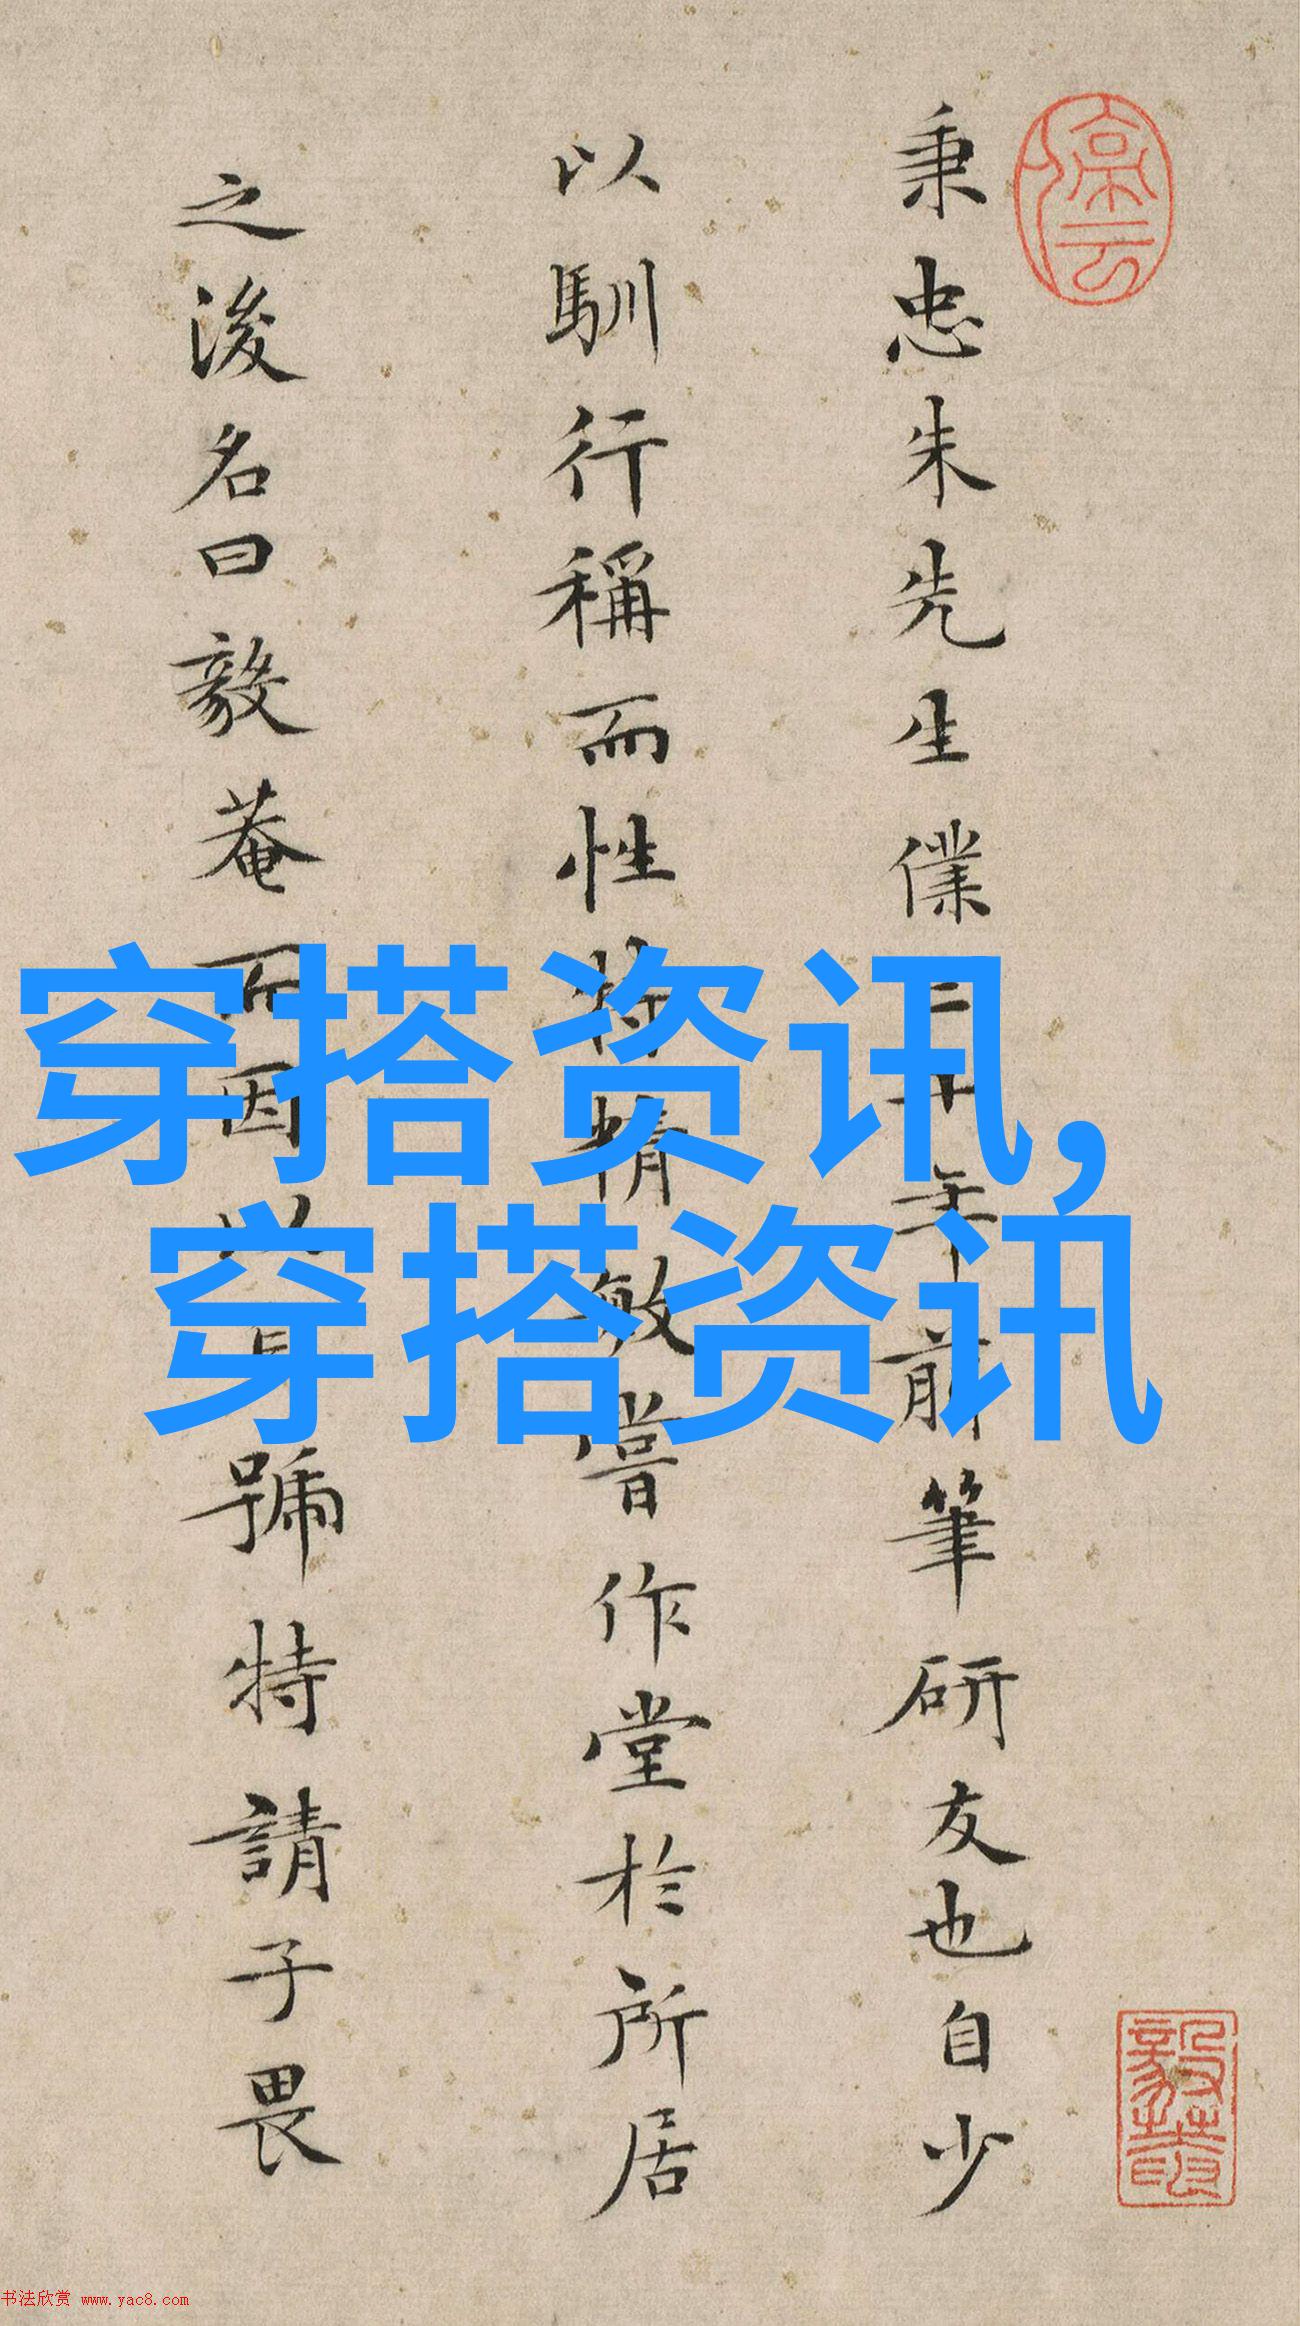 停云
秉忠朱先生僕十年前筆研友也自少
以馴行稱而性特精敏嘗作堂於所居
之後名曰毅菴因以號特請子畏
穿搭资讯，
穿搭资讯
书法欣赏 www.yac8.com